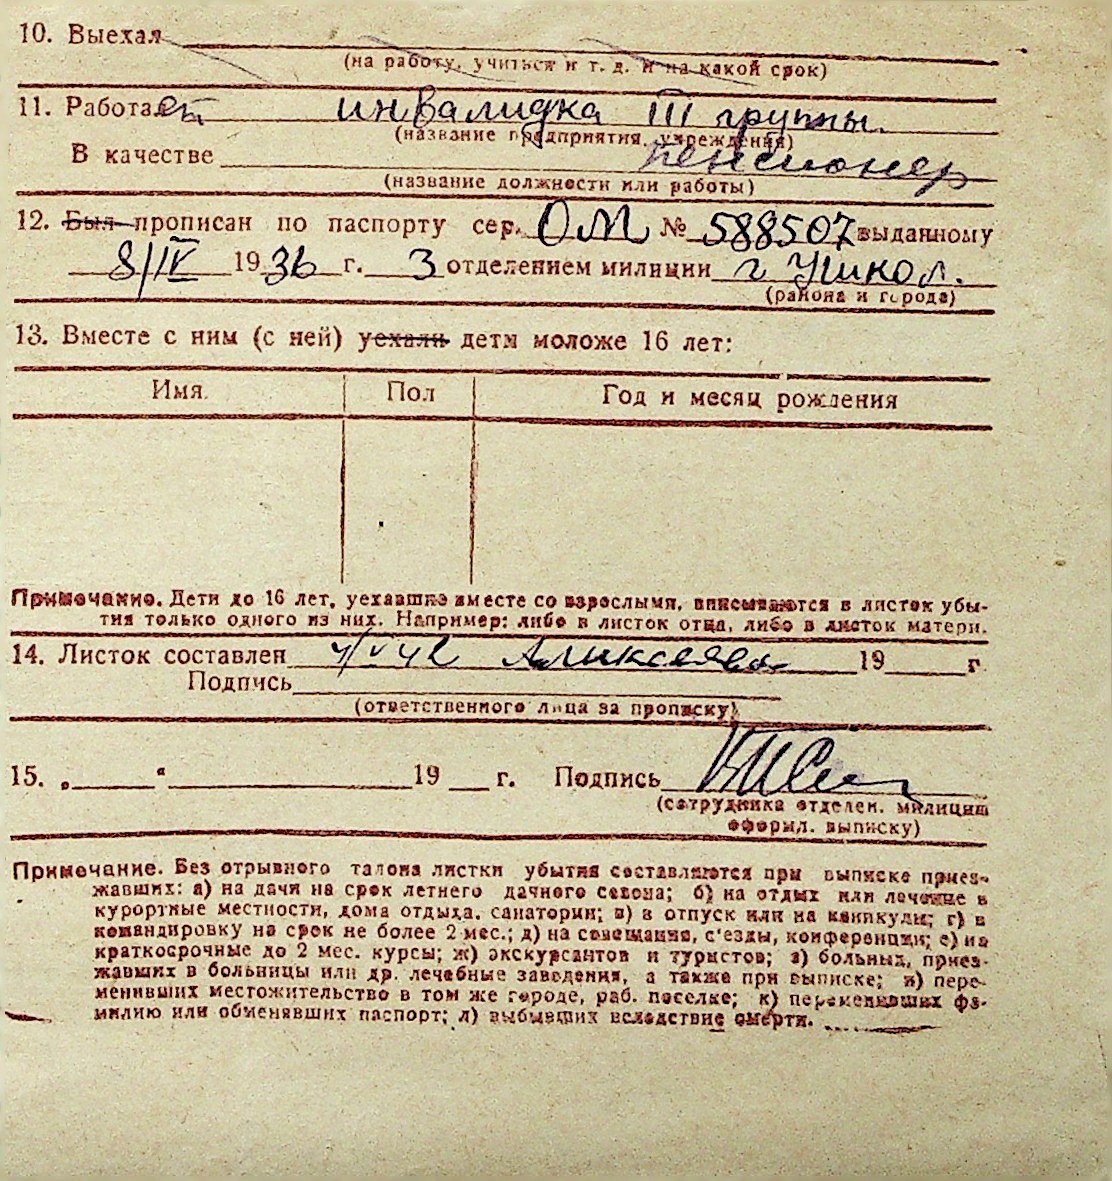 10. Выехал
(на работу, учиться и т. д. и на какой срок)
11. Работает инвалидка III группы.
(название предприятия, учреждения)
В качестве пенсионер
(название должности или работы)
12. Был прописан по паспорту сер. ОМ № 588507 выданному
8/IV 1936 г. 3 отделением милиции г.
(района и города)
13. Вместе с ним (с ней) уехали дети моложе 16 лет:
Имя Пол Год и месяц рождения
Примечание. Дети до 16 лет, уехавшие вместе со взрослыми, вписываются в листок убы-
тия только одного из них. Например: либо в листок отца, либо в листок матери.
14. Листок составлен 4/V 42 Алексеева 19 г.
Подпись
(ответственного лица за прописку)
15. „ “ 19 г. Подпись
(сотрудника отделен. милиции
оформл. выписку)
Примечание. Без отрывного талона листки убытия составляются при выписке приез-
жавших: а) на дачи на срок летнего дачного сезона; б) на отдых или лечение в
курортные местности, дома отдыха, санатории; в) в отпуск или на каникулы; г) в
командировку на срок не более 2 мес.; д) на совещания, с'езды, конференции; е) на
краткосрочные до 2 мес. курсы; ж) экскурсантов и туристов; з) больных, приез-
жавших в больницы или др. лечебные заведения, а также при выписке; и) пере-
менивших местожительство в том же городе, раб. поселке; к) переменивших фа-
милию или обменявших паспорт; л) выбывших вследствие смерти.